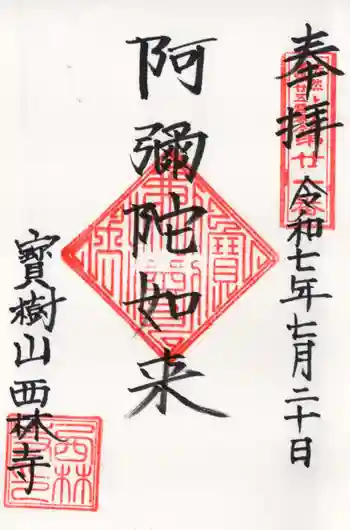 奉拝
令和七年七月二十日
阿彌陀如来
寳樹山西林寺
西林